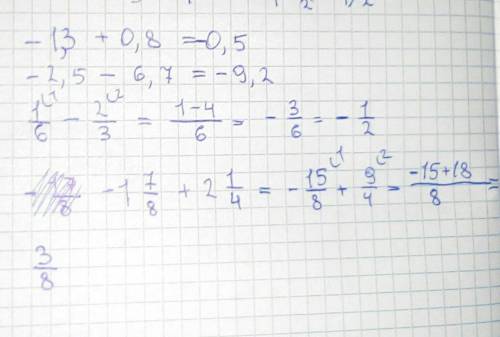 -1,3 + 0,8 = -0,5
-2,5 - 6,7 = -9,2
1/6 ⁽¹ - 2/3 ⁽² = (1-4)/6 = - 3/6 = - 1/2
-1 7/8 + 2 1/4 = - 15/8 ⁽¹ + 9/4 ⁽² = (-15+18)/8 =
3/8